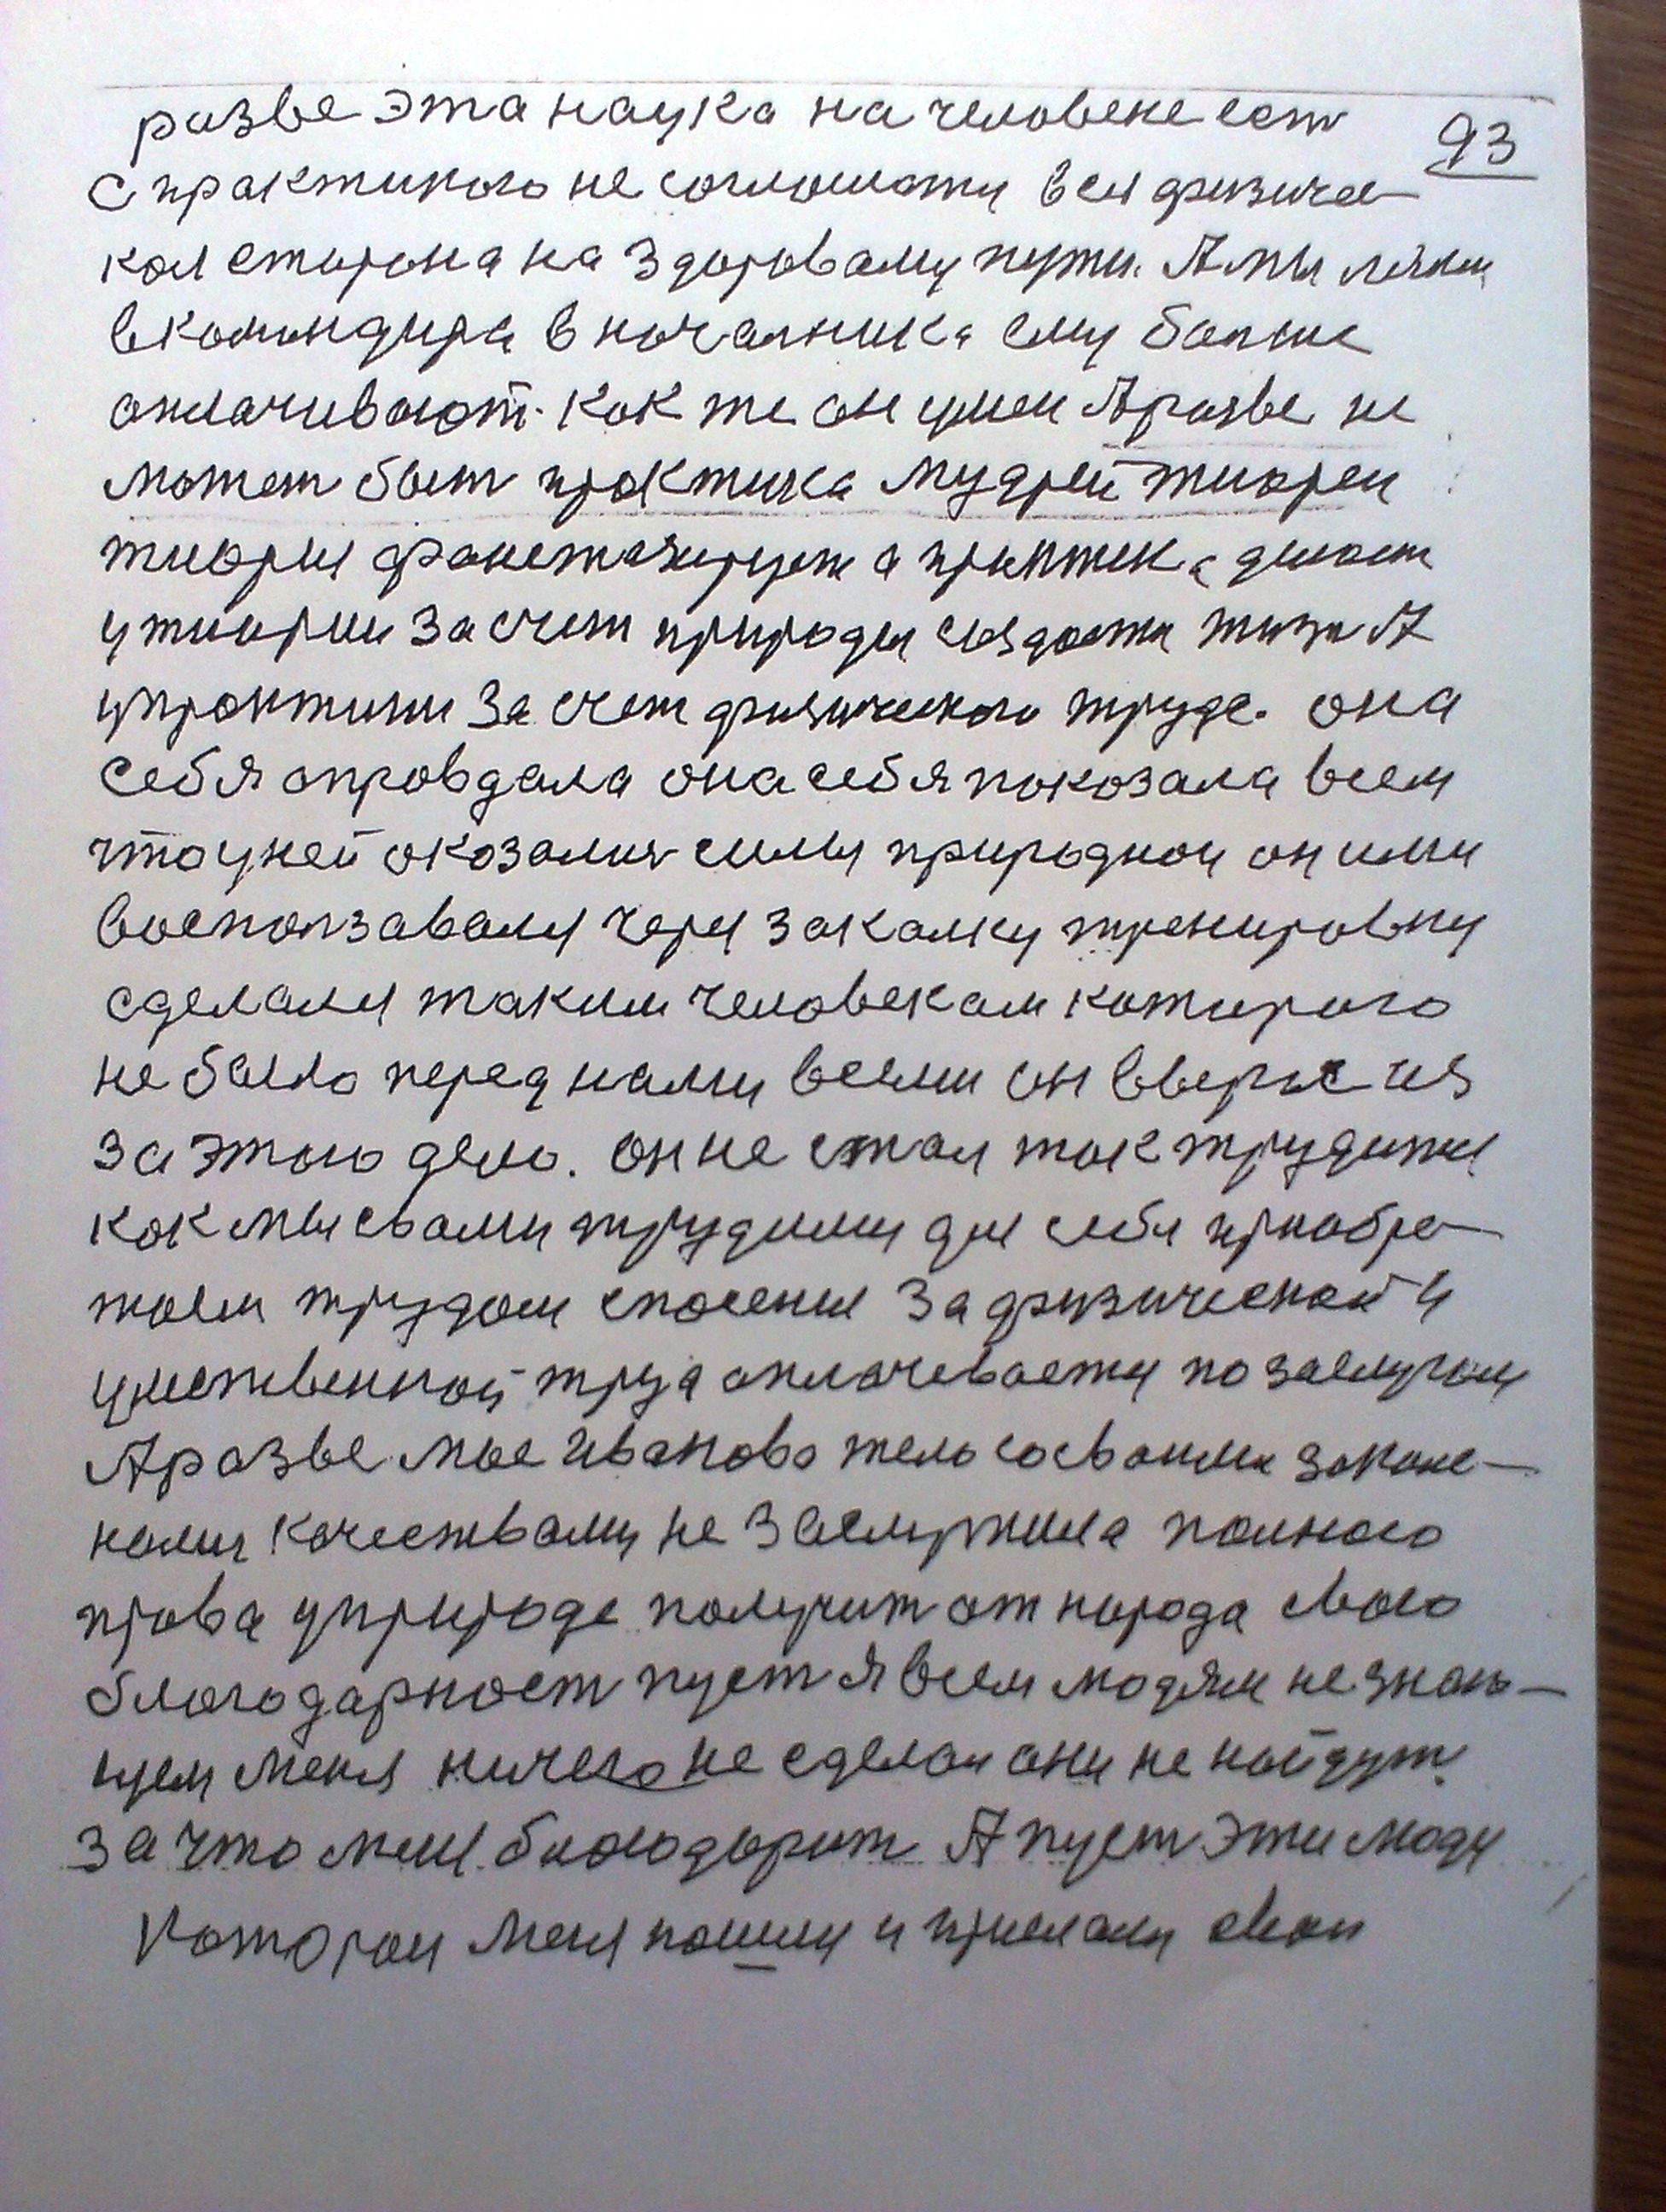 разве эта наука на человеке ест 93
с практикого не согломати вся физичес-
кая сторона на здороваму пути. А мы лезим
в командира в начальника ему болше
оплачивают. Как же он умен А разве не
может быт практика мудрей тиореи
тиория фантазирует а практика делает
у тиории за счет природы создати жизн А
у практики за счет физического труда. она
себя оправдала она себя показала всем
что у ней оказалис силы природнои он ими
восползавался через закалку тренировку
сделался таким человекам которого
не было перед нами всеми он взялся
за этого дело. он не стал так трудится
как мы с вами трудимся для себя приобре-
таем трудом спасения За физической и
умственной труд оплачевается по заслугам
А разве мое Иваново тело со своими закале-
ными качествами не заслужила полного
права у природе получит от народа свого
благодарност пуст я всем людям не знаю-
щем меня ничего не сделал они не найдут
за что меня благодарит А пуст эти люди
Которои меня пошли и прислали свои